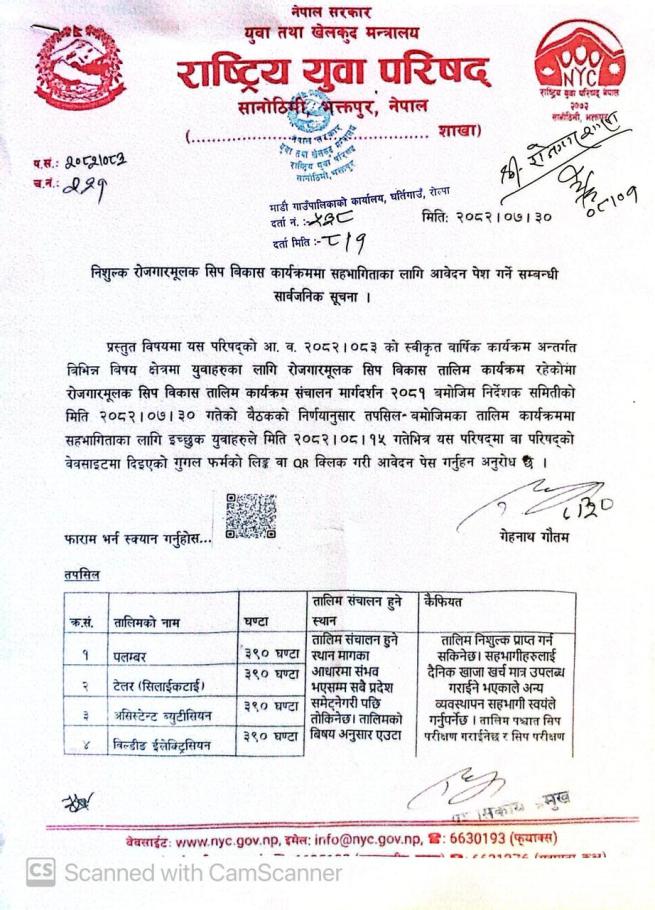 नेपाल सरकार
युवा तथा खेलकुद मन्त्रालय
राष्ट्रिय युवा परिषद
सानोठिमी, भक्तपुर, नेपाल
(................................................ शाखा)
NYC
राष्ट्रिय युवा परिषद नेपाल
२०७२
सानोठिमी, भक्तपुर
नेपाल सरकार
युवा तथा खेलकुद मन्त्रालय
राष्ट्रिय युवा परिषद
सानोठिमी, भक्तपुर
प.सं.: २०८२।०८३
च.नं.: २२१
माडी गाउँपालिकाको कार्यालय, घर्तिगाउँ, रोल्पा
दर्ता नं. :-
दर्ता मिति :- ८/१
मिति: २०८२।०७।३०
०८/०१
निशुल्क रोजगारमूलक सिप विकास कार्यक्रममा सहभागिताका लागि आवेदन पेश गर्ने सम्बन्धी
सार्वजनिक सूचना ।
प्रस्तुत विषयमा यस परिषद्को आ. व. २०८२।०८३ को स्वीकृत वार्षिक कार्यक्रम अन्तर्गत
विभिन्न विषय क्षेत्रमा युवाहरुका लागि रोजगारमूलक सिप विकास तालिम कार्यक्रम रहेकोमा
रोजगारमूलक सिप विकास तालिम कार्यक्रम संचालन मार्गदर्शन २०८१ बमोजिम निर्देशक समितीको
मिति २०८२।०७।३० गतेको बैठकको निर्णयानुसार तपसिल बमोजिमका तालिम कार्यक्रममा
सहभागिताका लागि इच्छुक युवाहरुले मिति २०८२।०८।१५ गतेभित्र यस परिषद्मा वा परिषद्को
वेवसाइटमा दिइएको गुगल फर्मको लिङ्क वा QR क्लिक गरी आवेदन पेस गर्नुहुन अनुरोध छ ।
फाराम भर्न स्क्यान गर्नुहोस...
गेहनाथ गौतम
तपसिल
क्र.सं. तालिमको नाम घण्टा तालिम संचालन हुने स्थान कैफियत
१ पलम्बर ३९० घण्टा
२ टेलर (सिलाईकटाई) ३९० घण्टा
३ असिस्टेन्ट ब्युटीसियन ३९० घण्टा
४ बिल्डीङ ईलेक्ट्रिसियन ३९० घण्टा
तालिम संचालन हुने
स्थान मागका
आधारमा संभव
भएसम्म सवै प्रदेश
समेट्नेगरी पछि
तोकिनेछ। तालिमको
बिषय अनुसार एउटा
तालिम निशुल्क प्राप्त गर्न
सकिनेछ। सहभागीहरुलाई
दैनिक खाजा खर्च मात्र उपलब्ध
गराईने भएकाले अन्य
व्यवस्थापन सहभागी स्वयंले
गर्नुपर्नेछ । तालिम पश्चात सिप
परीक्षण गराईनेछ र सिप परीक्षण
वेवसाईट: www.nyc.gov.np, इमेल: info@nyc.gov.np, ☎: 6630193 (फ्याक्स)
CS Scanned with CamScanner